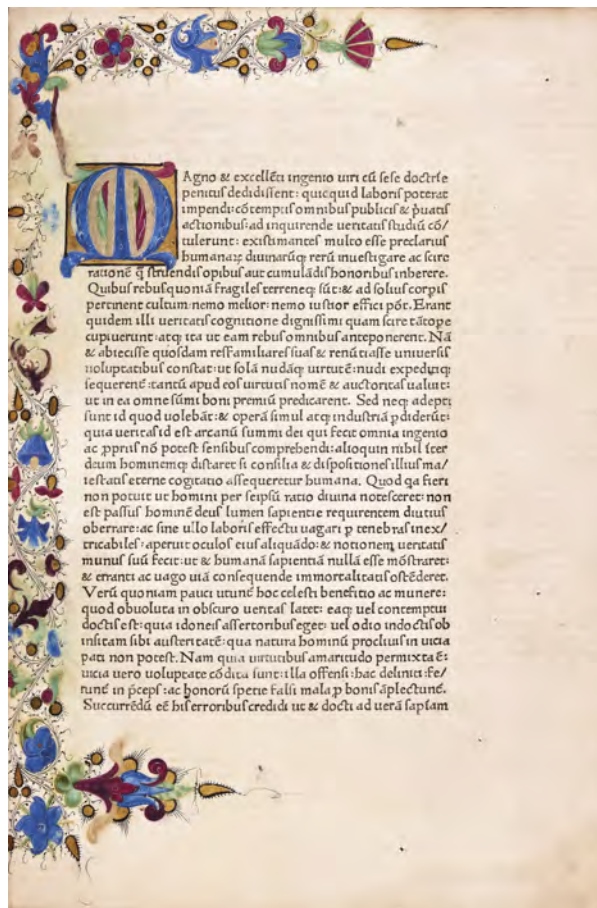 MAgno & excellēti ingenio uiri cū sese doctrīe
penitus dedidissent: quicquid laboris poterat
impendi: cōtemptis omnibus publicis & p̱uatis
actionibus: ad inquirende ueritatis studiū cō/
tulerunt: existimantes multo esse preclarius
humanaꝝ diuinarūq; rerū inuestigare ac scire
rationē q̄ struendis opibus aut cumulādis honoribus inherere.
Quibus rebus quoniā fragiles terreneq; sūt: & ad solius corp̱is
pertinent cultum: nemo melior: nemo iustior effici pōt. Erant
quidem illi ueritatis cognitione dignissimi quam scire tātope
cupiuerunt: atq; ita ut eam rebus omnibus anteponerent. Nā
& abiecisse quosdam res familiares suas & renūtiasse uniuersis
uoluptatibus constat: ut solā nudāq; uirtutē: nudi expeditiq;
sequerent̄: tantū apud eos uirtutis nomē & auctoritas ualuit:
ut in ea omne sūmi boni premiū predicarent. Sed neq; adepti
sunt id quod uolebāt: & operā simul atq; industriā p̱diderūt:
quia ueritas id est arcanū summi dei qui fecit omnia ingenio
ac p̱priis nō potest sensibus comprehendi: alioquin nihil īter
deum hominemq; distaret si consilia & dispositiones illius ma/
iestatis eterne cogitatio assequeretur humana. Quod qa fieri
non potuit ut homini per seipsū ratio diuina notesceret: non
est passus hominē deus lumen sapientie requirentem diutius
oberrare: ac sine ullo laboris effectu uagari p̱ tenebras inex/
tricabiles: aperuit oculos eius aliquādo: & notionem ueritatis
munus suū fecit: ut & humanā sapientiā nullā esse mōstraret:
& erranti ac uago uiā consequende immortalitatis ostēderet.
Verū quoniam pauci utunt̄ hoc celesti benefitio ac munere:
quod obuoluta in obscuro ueritas latet: eaq; uel contemptui
doctis est: quia idoneis assertoribus eget: uel odio indoctis ob
insitam sibi austeritatē: qua natura hominū procliuis in uicia
pati non potest. Nam quia uirtutibus amaritudo permixta ē:
uicia uero uoluptate cōdita sunt: illa offensi: hac deliniti: fe/
runt̄ in p̄ceps: ac honorū spetie falsi mala p̱ bonis āplectunt̄.
Succurrēdū eē his erroribus credidi ut & docti ad uerā sap̄iam